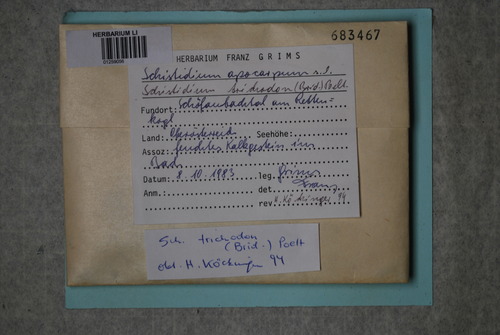 HERBARIUM LI
683467
HERBARIUM FRANZ GRIMS
Schistidium apocarpum s.l.
Schistidium trichodon (Brid.) Poelt.
Fundort: am Retten=
kogl
Land: Oberösterreich Seehöhe:
Assoz: feuchtes Kalkgestein im
Bach
Datum: 8.10.1983 leg. Grims
Anm.: det. Franz
rev. H. Köckinger 94
Sch. trichodon
(Brid.) Poelt
det. H. Köckinger 94